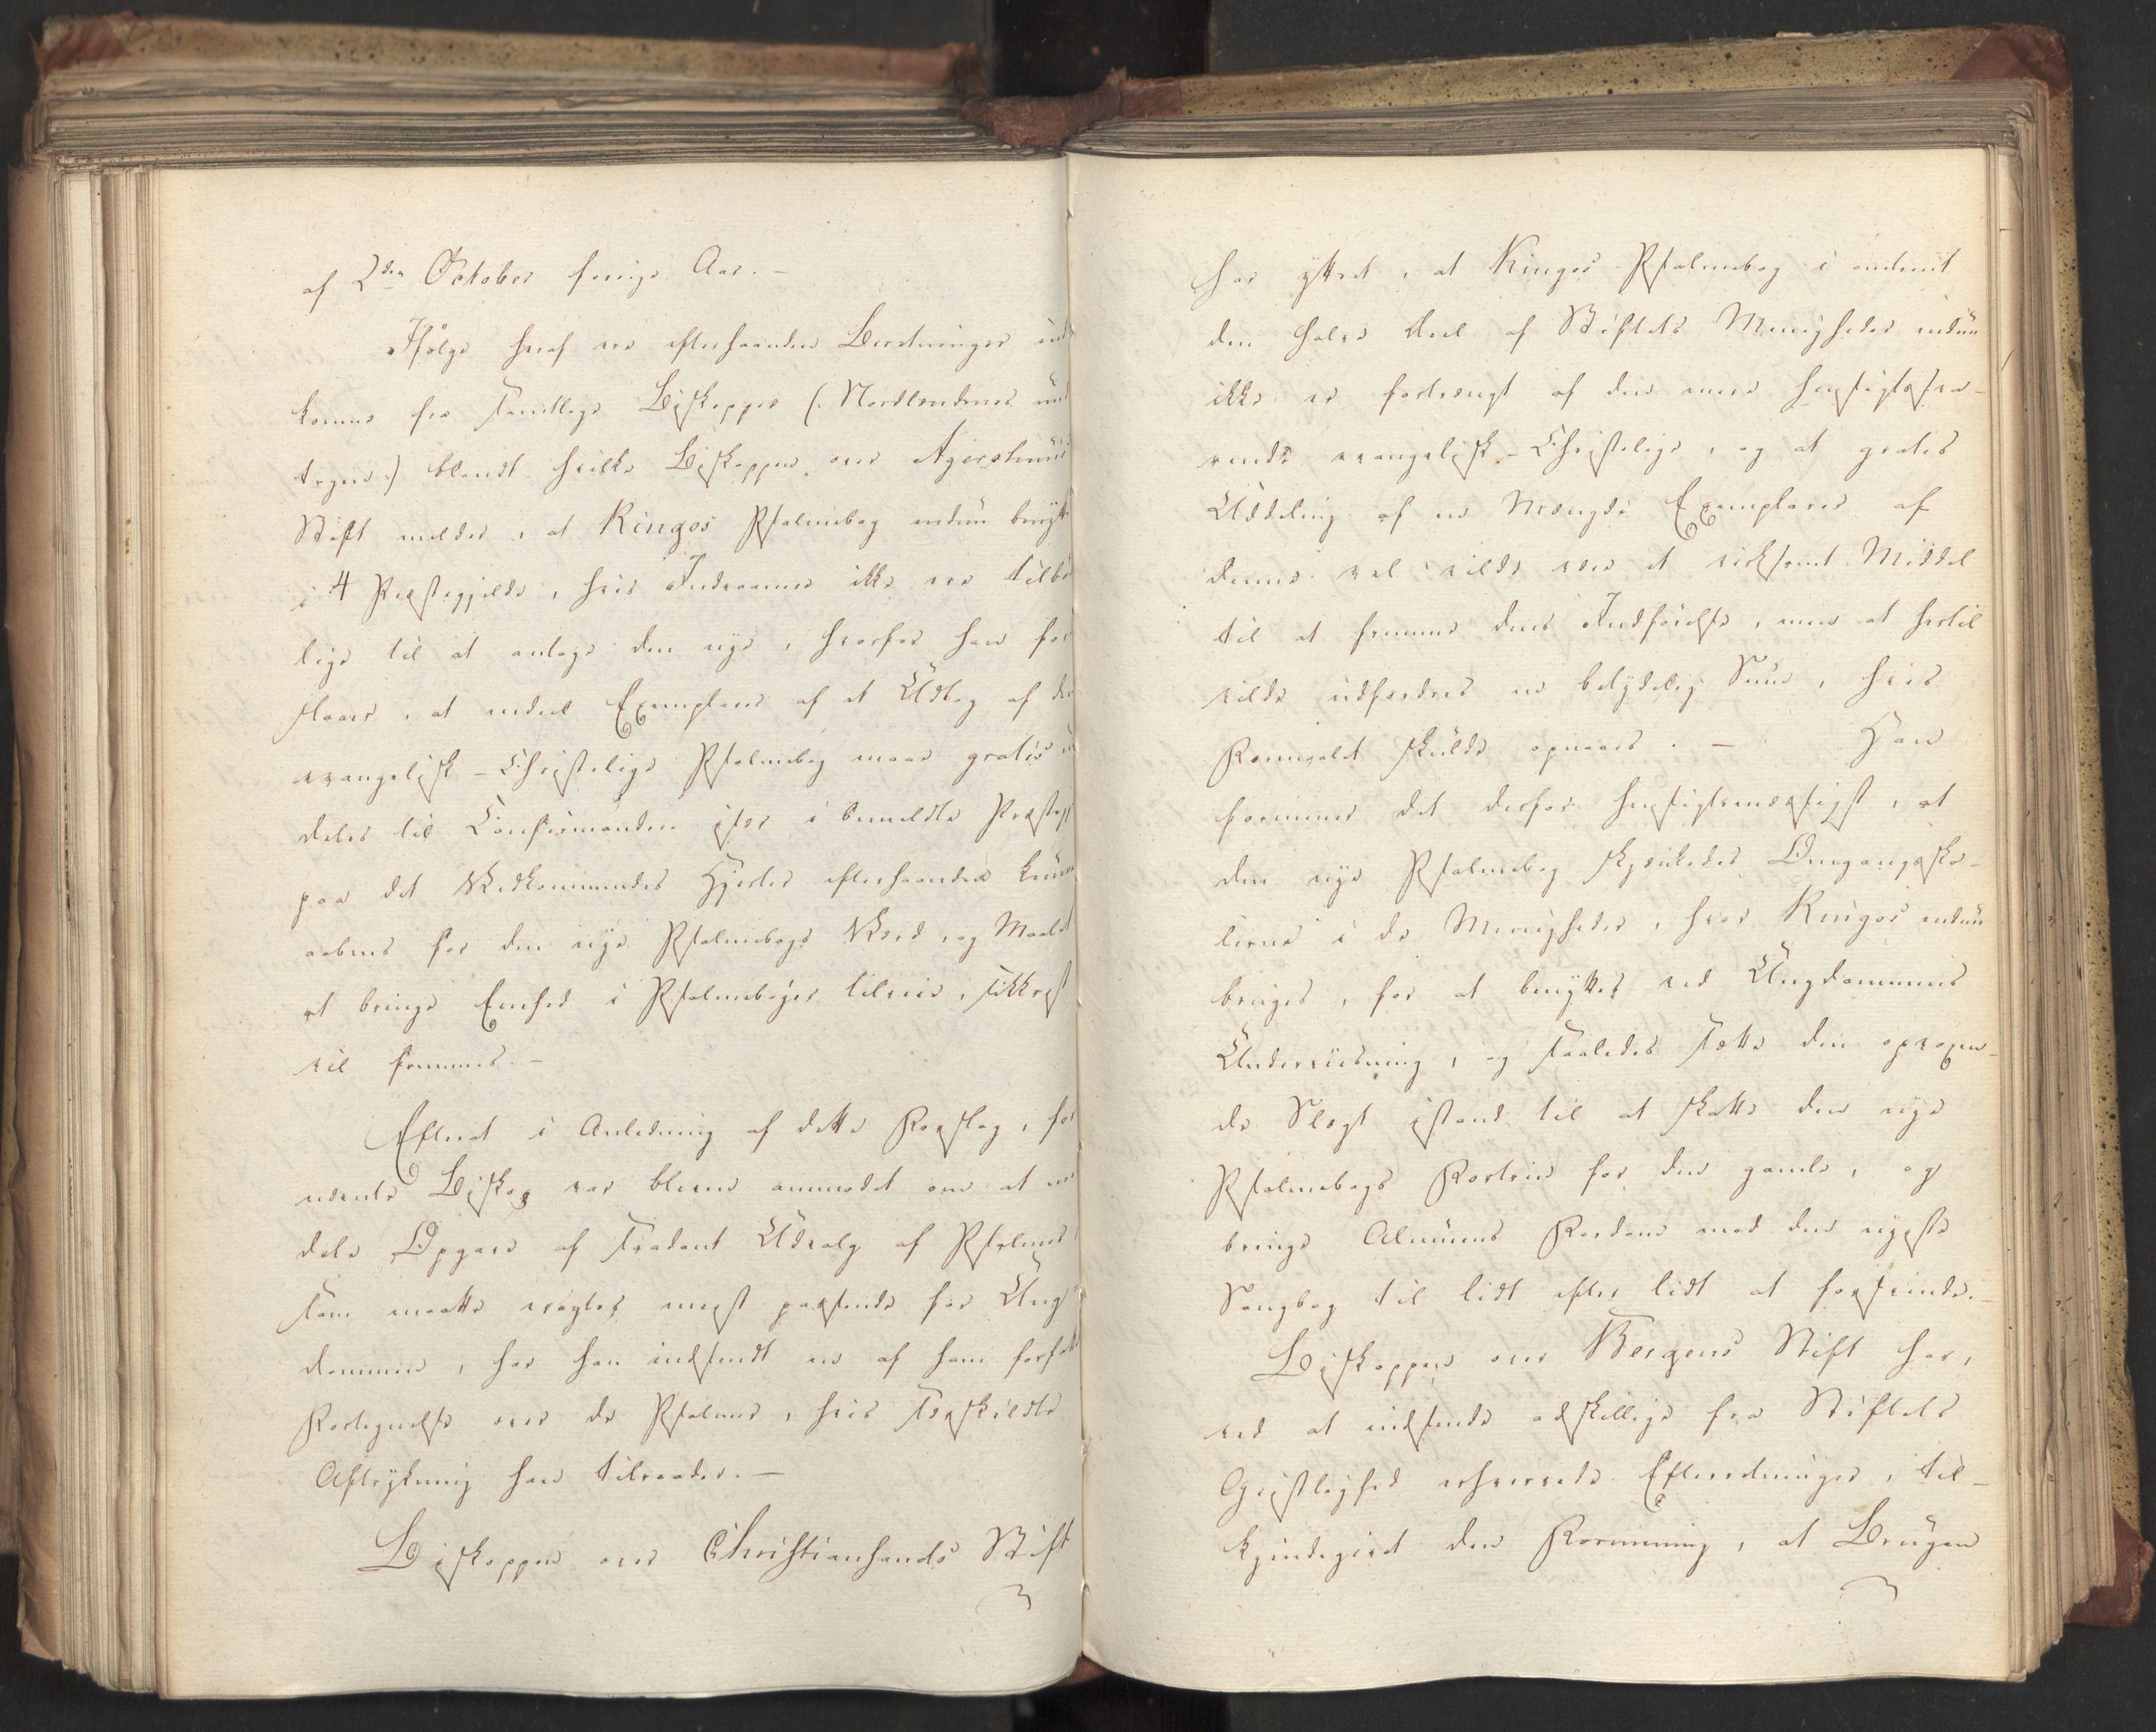 af 2den October forrige Aar. –
Ifølge heraf ere efterhaanden Beretninger ind
komne fra samtlige Biskopper (: Nordlandenes und
tagen :) blandt hvilke Biskoppen over Agershuus
Stift melder, at Kingos Psalmebog endnu benytt
i 4 Præstegjelde, hvis Indvaanere ikke ere tilbø
lige til at antage den nye, hvorfor han for
slaaer, at endeel Exemplarer af et Udtog af den
evangelisk-Christelige Psalmebog maae gratis u
deles til Confirmanderne især i bemeldte Præstegj
paa det Vedkommendes Hjerter efterhaanden kunne
aabnes for den nye Psalmebogs Værd, og Maalet
at bringe Eenhed i Psalmebøger tilveie, sikkrest
vil fremmes. –
Efterat i Anledning af dette Forslag, for
nævnte Biskop var bleven anmodet om at med
dele Opgave af saadant Udvalg af Psalmer,
som maatte eragtes meest passende for Ung
dommen, har han indsendt en af ham forfatt
Fortegnelse over de Psalmer, hvis særskildte
Aftrykning han tilraader. –
Biskoppen over Christiansands Stift
har yttret, at Kingos Psalmebog i omtrent
den halve Deel af Stiftets Menigheder endnu
ikke er fortrængt af den mere hensigtssva-
rende evangelisk-Christelige, og at gratis
Uddeling af en Mængde Exemplarer af
denne vel vilde være et virksomt Middel
til at fremme dens Indførelse, men at hertil
vilde udfordres en betydelig Sum, hvis
Formaalet skulde opnaaes. – Han
formener det derfor hensigtsmæssigst, at
den nye Psalmebog skjenkedes Omgangssko-
lerne i de Menigheder, hvor Kingos endnu
bruges, for at benyttes ved Ungdommens
Underviisning, og saaledes sætte den opvoxen-
de Slægt istand til at skatte den nye
Psalmebogs Fortrin for den gamle, og
bringe Almuens Fordom mod den nyeste
Sangbog til lidt efter lidt at forsvinde. –
Biskoppen over Bergens Stift har,
ved at indsende adskillige fra Stiftets
Geistlighed erhvervede Efterretninger, til-
kjendegivet den Formening, at Brugen